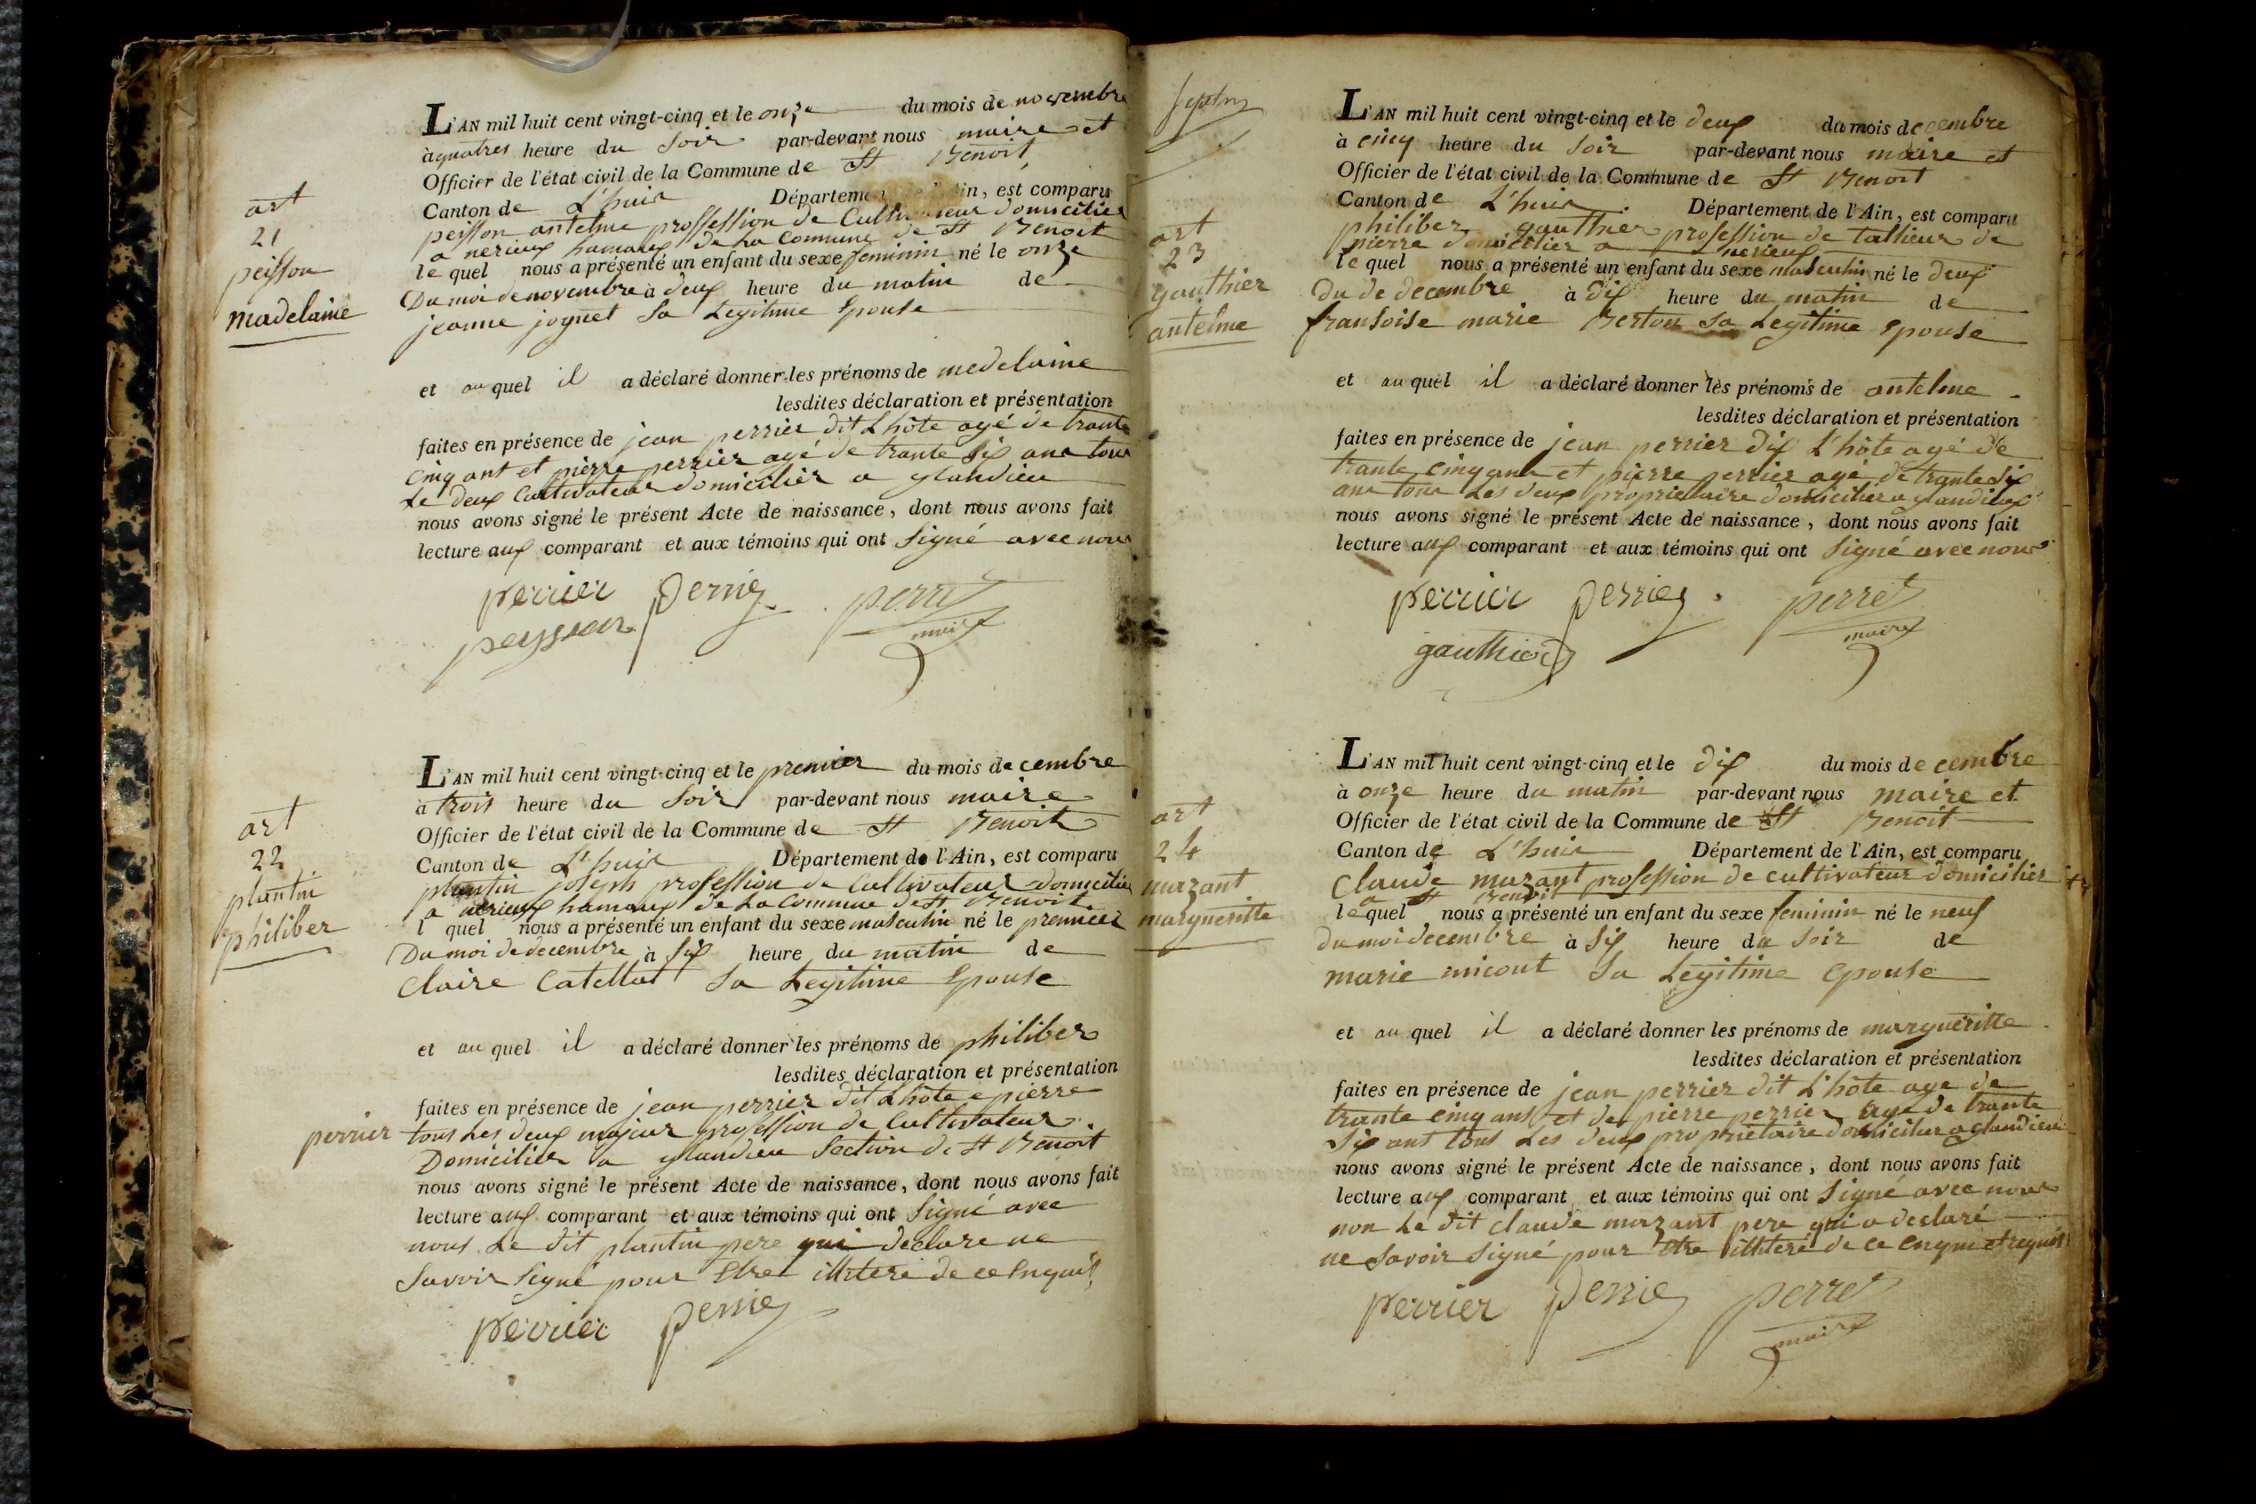 art
21
peisson
madelaine
L'AN mil huit cent vingt-cinq et le onze du mois de novembre
à quatres heure du soir par-devant nous maire et
Officier de l'état civil de la Commune de St Benoit
Canton de L'huis Département de l'Ain, est comparu
peisson antelme proffession de Cultivateur domicilier
a nerieux hamaux de La Commune de St Benoit
le quel nous a présenté un enfant du sexe feminin né le onze
Du moi de novembre à deux heure du matin de
jeanne joguet sa Legitime Epouse
et au quel il a déclaré donner les prénoms de medelaine
lesdites déclaration et présentation
faites en présence de jean perrier dit L'hôte agé de trante
Cinq ant et pierre perrier agé de trante six ans tous
Le deux Cultivateur domicilier a glandieu
nous avons signé le présent Acte de naissance, dont nous avons fait
lecture aux comparant et aux témoins qui ont signé avec nous
perrier perrier perret
peysson maire
art
22
plantin
philiber
L'AN mil huit cent vingt-cinq et le premier du mois decembre
à trois heure du soir par-devant nous maire
Officier de l'état civil de la Commune de St Benoit
Canton de L'huis Département de l'Ain, est comparu
plantin joseph profession de Cultivateur domicilier
a nerieux hamaux de La Commune de St Benoit
l quel nous a présenté un enfant du sexe masculin né le premier
Du moi de decembre à six heure du matin de
Claire Catellat sa Legitime Epouse
et au quel il a déclaré donner les prénoms de philiber
lesdites déclaration et présentation
faites en présence de jean perrier dit L'hôte e pierre
perrier tous Les deux majeur profession de Cultivateur
Domicilier a glandieu Section de St Benoit
nous avons signé le présent Acte de naissance, dont nous avons fait
lecture aux comparant et aux témoins qui ont signé avec
nous Le dit plantin pere qui declare ne
savoir signé pour Etre illiteré de ce Enquis
perrier perrier
art
23
gauthier
antelme
L'AN mil huit cent vingt-cinq et le deux du mois decembre
à cinq heure du soir par-devant nous maire et
Officier de l'état civil de la Commune de St Benoit
Canton de L'huis Département de l'Ain, est comparu
philiber gauthier profession de tallieur de
pierre domicilier a nerieux
le quel nous a présenté un enfant du sexe masculin né le deux
du de decembre à dix heure du matin de
fransoise marie Berton sa Legitime Epouse
et au quel il a déclaré donner les prénoms de antelme
lesdites déclaration et présentation
faites en présence de jean perrier dix L'hôte agé de
trante cinq ans et pierre perrier agé de trante six
ans tous Les deux proprietaire domicilier a glandieux
nous avons signé le présent Acte de naissance, dont nous avons fait
lecture aux comparant et aux témoins qui ont signé avec nous
perrier perrier perret
gauthier maire
art
24
mazant
margueritte
L'AN mil huit cent vingt-cinq et le dix du mois decembre
à onze heure du matin par-devant nous maire et
Officier de l'état civil de la Commune de St Benoit
Canton de L'huis Département de l'Ain, est comparu
Claude mazant profession de cultivateur domicilier
a St Benoit
le quel nous a présenté un enfant du sexe feminin né le neuf
du moi decembre à six heure du soir de
marie micout sa Legitime Epouse
et au quel il a déclaré donner les prénoms de margueritte
lesdites déclaration et présentation
faites en présence de jean perrier dit L'hôte age de
trante cinq ans et de pierre perrier age de trante
six ant tous Les deux proprietaire domicilier a glandieu
nous avons signé le présent Acte de naissance, dont nous avons fait
lecture aux comparant et aux témoins qui ont signé avec nous
non Le dit claude mazant pere qui a declaré
ne savoir signé pour Etre illiteré de ce enquis et requis
perrier perrier perret
maire